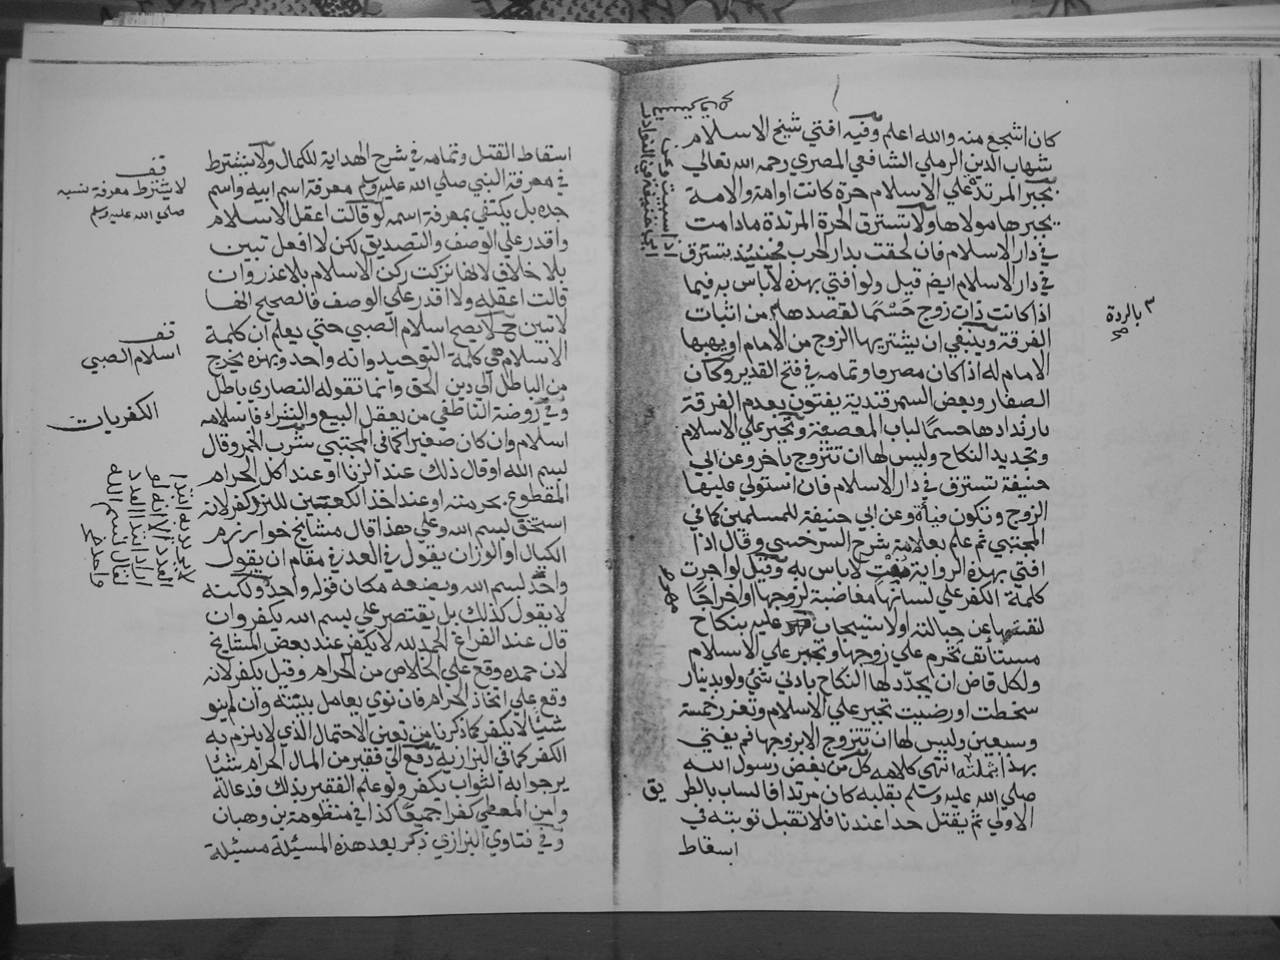 كان اشجع منه والله اعلم وفيه افتي شيخ الاسلام
شهاب الدين الرملي الشافعي المصري رحمه الله تعالي
بجبر المرتد علي الاسلام حرة كانت او امة والامة
يجبرها مولاها ولا تسترق الحرة المرتدة مادامت
في دار الاسلام فان لحقت بدار الحرب فحينئذ تسترق
في دار الاسلام ايضا قيل ولو افتي بهذه لا باس به فيما
اذا كانت ذات زوج حسما لقصدها من اثبات
الفرقة وينبغي ان يشتريها الزوج من الامام او يهبها
الامام له اذا كان مصرفا وتمامه في فتح القدير وكان
الصفار وبعض السمرقندية يفتون بعدم الفرقة
بارتدادها حسما لباب المعصية وتجبر علي الاسلام
وتجديد النكاح وليس لها ان تتزوج باخر وعن ابي
حنيفة تسترق في دار الاسلام فان استولي عليها
الزوج وتكون فيأة وعن ابي حنيفة للمسلمين كما في
المجتبي ثم علم بعلامة شرح السرخسي وقال اذا
افتي بهذه الرواية لا باس به وقيل لو اجرت
كلمة الكفر علي لسانها مغاضبة لزوجها او اخراجا
لنفسها عن حبالته او لاستيجاب عليه بنكاح
مستأنف تحرم علي زوجها وتجبر علي الاسلام
ولكل قاض ان يجدد لها النكاح بادني شئ ولو بدينار
سخطت او رضيت تجبر علي الاسلام وتعزر خمسة
وسبعين وليس لها ان تتزوج الا بزوجها فم يفتي
بهذا انتهي كلامه كل من بغض رسول الله
صلي الله عليه وسلم بقلبه كان مرتدا فالساب بالطر
يق
الاولي ثم يقتل حدا عندنا فلا تقبل توبته في
اسقاط
بالردة
٣
صح
اسقاط القتل وتمامه في شرح الهداية للكمال ولا يشترط
في معرفة النبي صلي الله عليه وسلم معرفة اسم ابيه واسم
جده بل يكتفي بمعرفة اسمه لو قالت اعقل الاسلام
واقدر علي الوصف والتصديق لكن لا افعل تبين
بلا خلاق لانها تركت ركن الاسلام بلا عذر وان
قالت اعقله ولا اقدر علي الوصف فالصحيح انها
لا تبين ح لا يصح اسلام الصبي حتي يعلم ان كلمة
الاسلام هي كلمة التوحيد وانه واحد وبهذه يخرج
من الباطل الي دين الحق وانما تقوله النصاري باطل
وفي روضة الناطفي من يعقل البيع والشرك فاسلامه
اسلام وان كان صغيرا كما في المجتبي شرب الخمر وقال
بسم الله او قال ذلك عند الزنا او عند اكل الحرام
المقطوع بحرمته او عند اخذ الكعبتين للنرد كفر لانه
استخق بسم الله وعلي هذا قال مشايخ خوارزم
الكيال او الوزان يقول في العدد في مقام ان يقول
واحد بسم الله ويضعه مكان قوله واحد ولكنه
لا يقول كذلك بل يقتصر علي بسم الله يكفر وان
قال عند الفراغ الحمد لله لا يكفر عند بعض المشايخ
لان حمده وقع علي الخلاص من الحرام وقيل يكفر لانه
وقع علي اتخاذ الحرام فان نوي يعامل بنيته وان لم ينو
شيئا لا يكفر كما ذكرنا من تعين الاحتمال الذي لا يلزم به
الكفر كما في البزازية دفع الي فقير من المال الحرام شيئا
يرجوا به الثواب يكفر ولو علم الفقير بذلك فدعا له
وامن المعطي كفرا جميعا كذا في منظومة بن وهبان
وفي فتاوي البزازي ذكر بعد هذه المسئيلة مسئيلة
قف
لا يشترط معرفة نسبه
صلي الله عليه وسلم
قف
اسلام الصبي
الكفريات